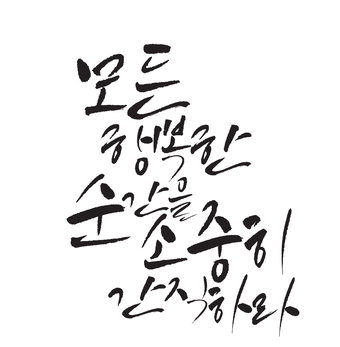 모든
행복한
순간을
소중히
간직하라